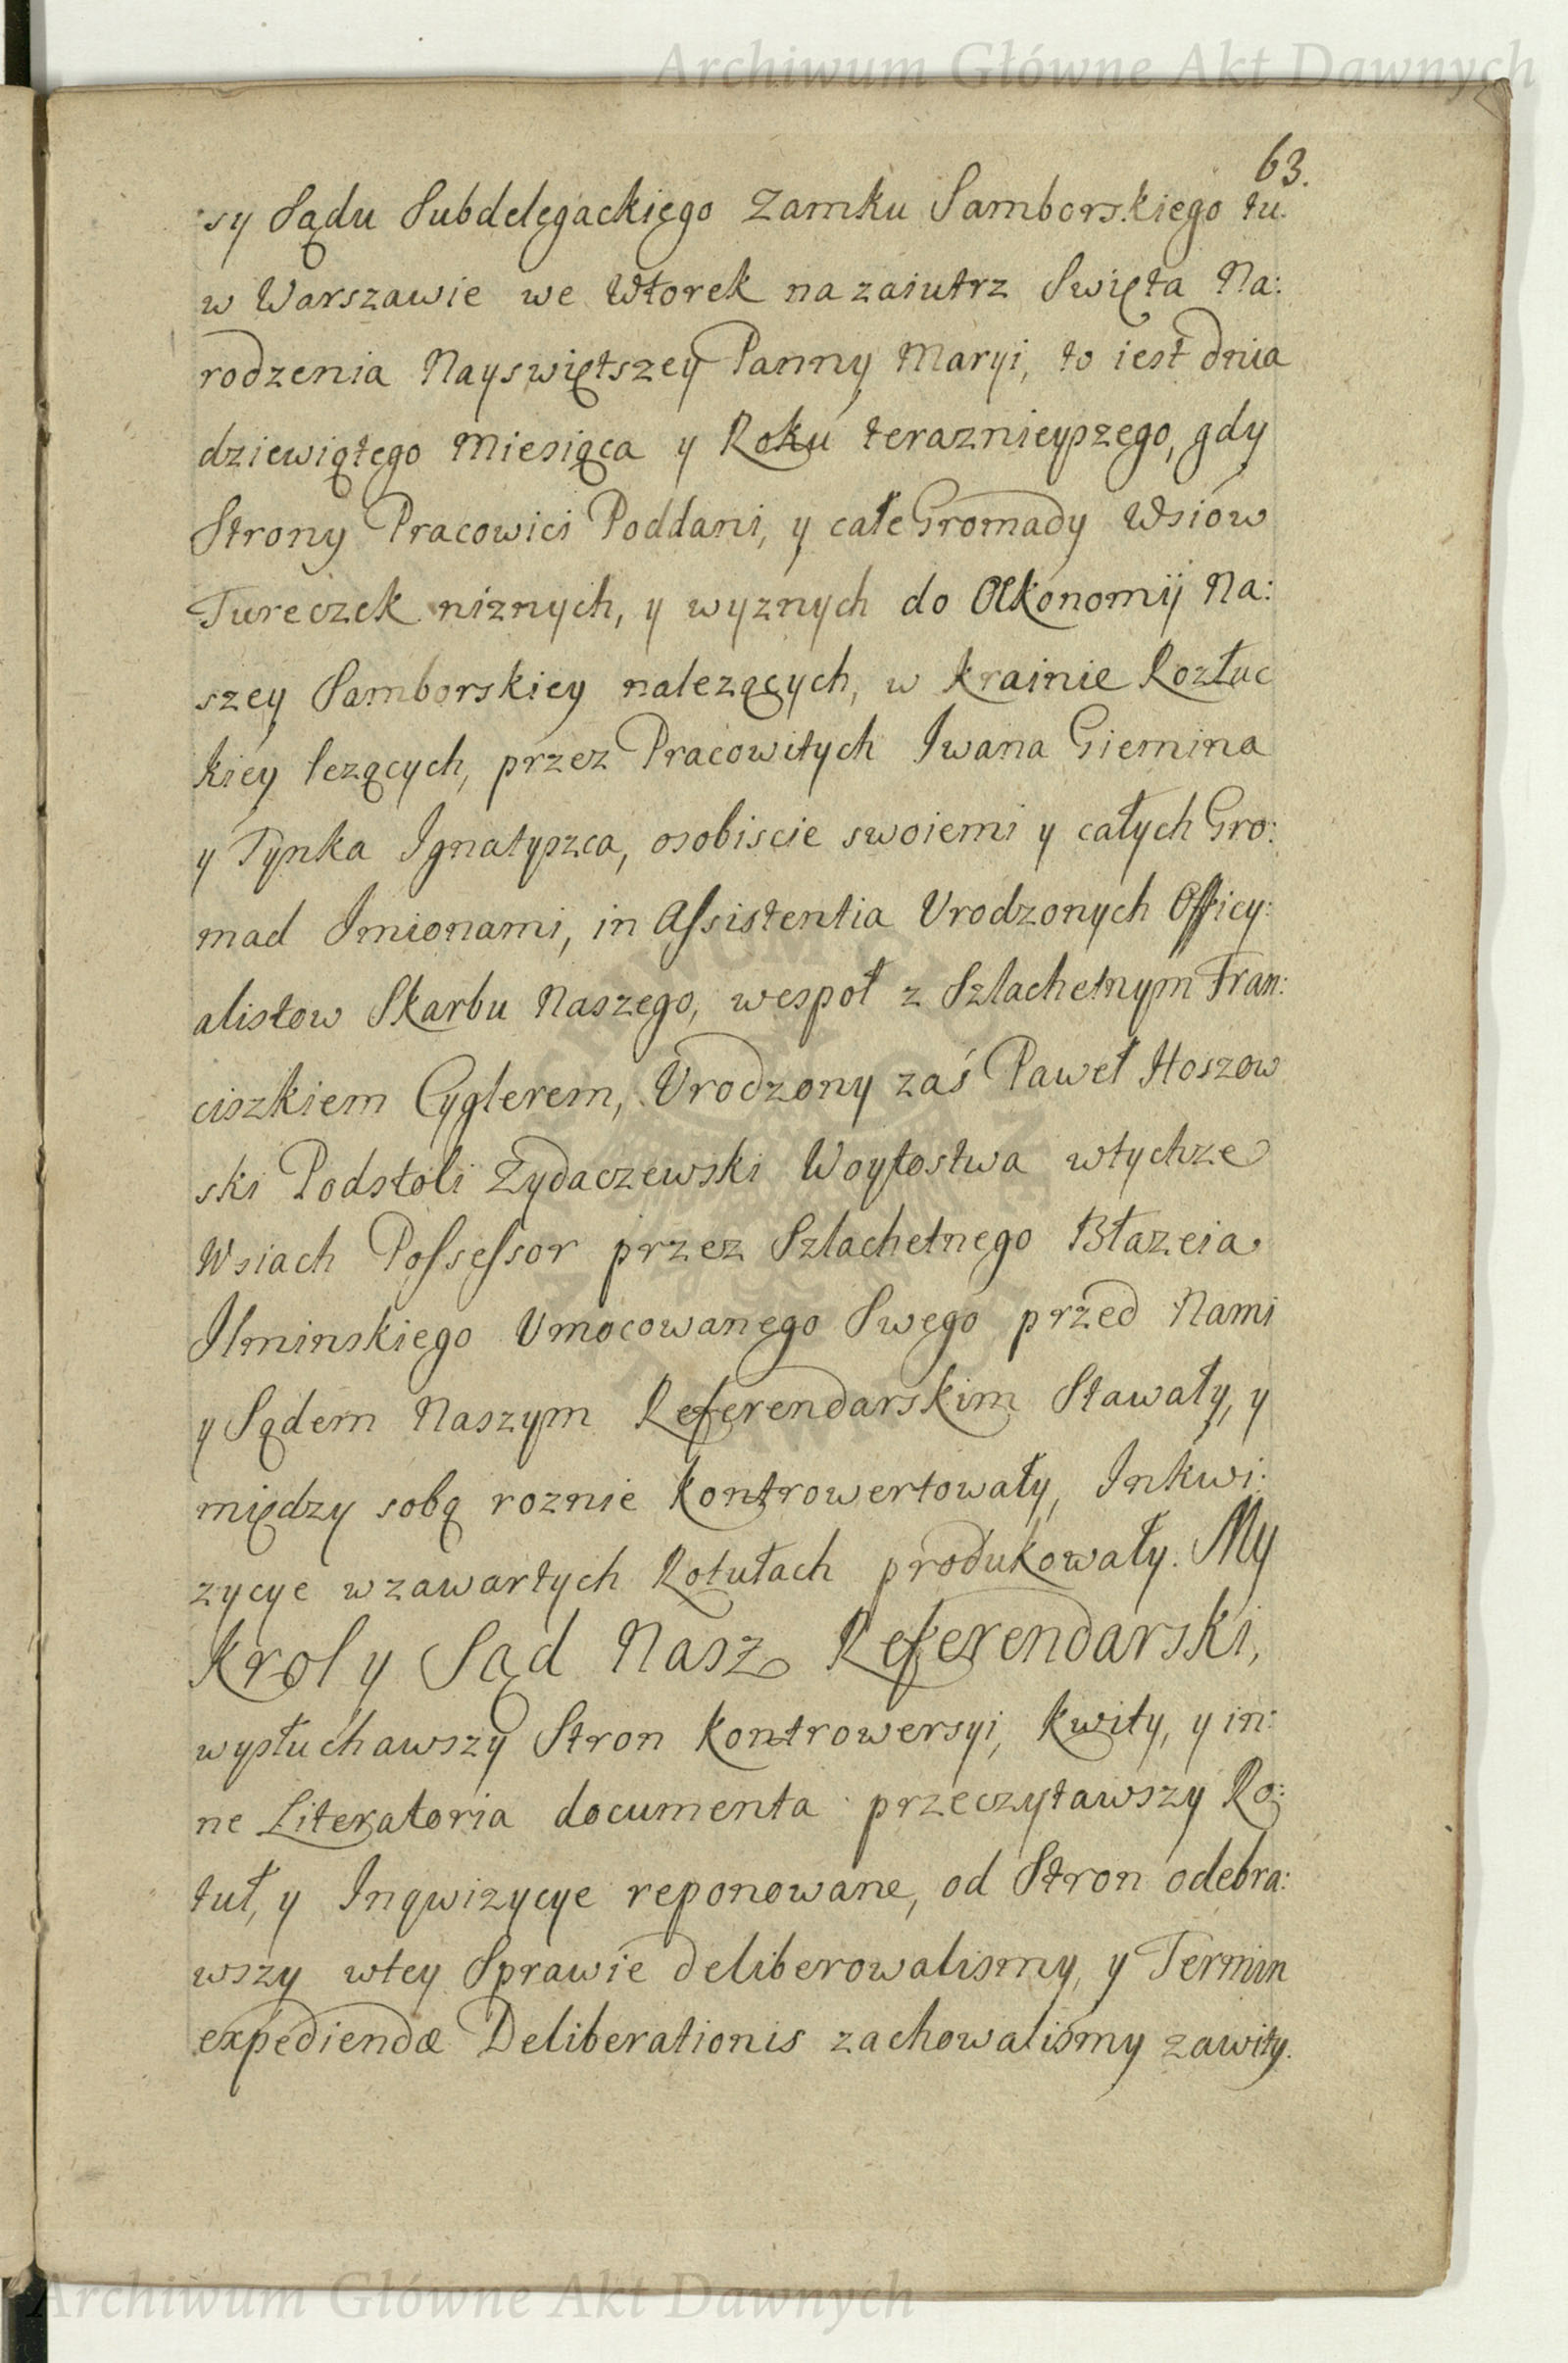 Archiwum Główne Akt Dawnych
63.
sy Sądu Subdelegackiego Zamku Samborskiego tu
w Warszawie we Wtorek nazaiutrz Swięta Na:
rodzenia Nayswiętszey Panny Maryi, to iest dnia
dziewiątego Miesiąca y Roku teraznieyszego, gdy
Strony Pracowici Poddani, y całe Gromady Wsiow
Tureczek niznych, y wyznych do Œkonomij Na:
szey Samborskiey nalezących, w Krainie Rozłuc
kiey lezących, przez Pracowitych Iwana Giemina
y Ignatyszca, osobiscie swoiemi y całych Gro:
mad Imionami, in Assistentia Urodzonych Officy:
alistow Skarbu Naszego, wespoł z Szlachetnym Fran:
ciszkiem Cyglerem, Urodzony zaś Paweł Hoszow
ski Podstoli Zydaczewski Woytostwa wtychze
Wsiach Possessor przez Szlachetnego Błazeia
Ilminskiego Umocowanego Swego przed Nami
y Sądem Naszym Referendarskim Stawały, y
między sobą roznie kontrowertowały, Inkwi:
zycye w zawartych Rotułach produkowały. My
Krol y Sąd Nasz Referendarski,
wysłuchawszy Stron Kontrowersyi, Kwity, y in:
ne Literatoria documenta przeczytawszy Ro:
tuł, y Inqwizycye reponowane, od Stron odebra:
wszy wtey Sprawie deliberowalismy, y Termin
expediendæ Deliberationis zachowalismy zawity.
Archiwum Główne Akt Dawnych